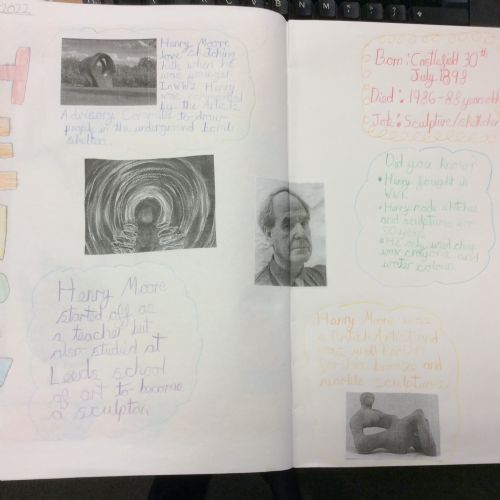 2022
Henry Moore
love sketching
hills when he
was younger.
In WW2 Henry
was
by the Artists
Advisory to draw
people in the underground bomb
shelter.
Henry Moore
started off as
a teacher but
also studied at
Leeds school
of art to become
a sculptor.
Born: Castleford 30th
July 1898
Died: 1986 - 88 years old
Job: Sculpture/sketcher
Did you know?
• Henry fought in
WW1.
• Henry made sketches
and sculptures for
60 years
• He only used cheap
wax crayons and
water colour.
Henry Moore was
a British Artist and
was well known
for his bronze and
marble sculptures